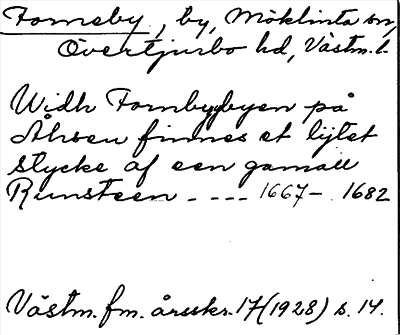 Forneby, by, Möklinta sn,
Övertjurbo hd, Västm. l.
Widh Fornbybyen på
Åhsen finnes et lijtet
stycke af een gamall
Runsteen _ _ _ _ 1667 – 1682
Västm. fm. årsskr. 17 (1928) s. 14.